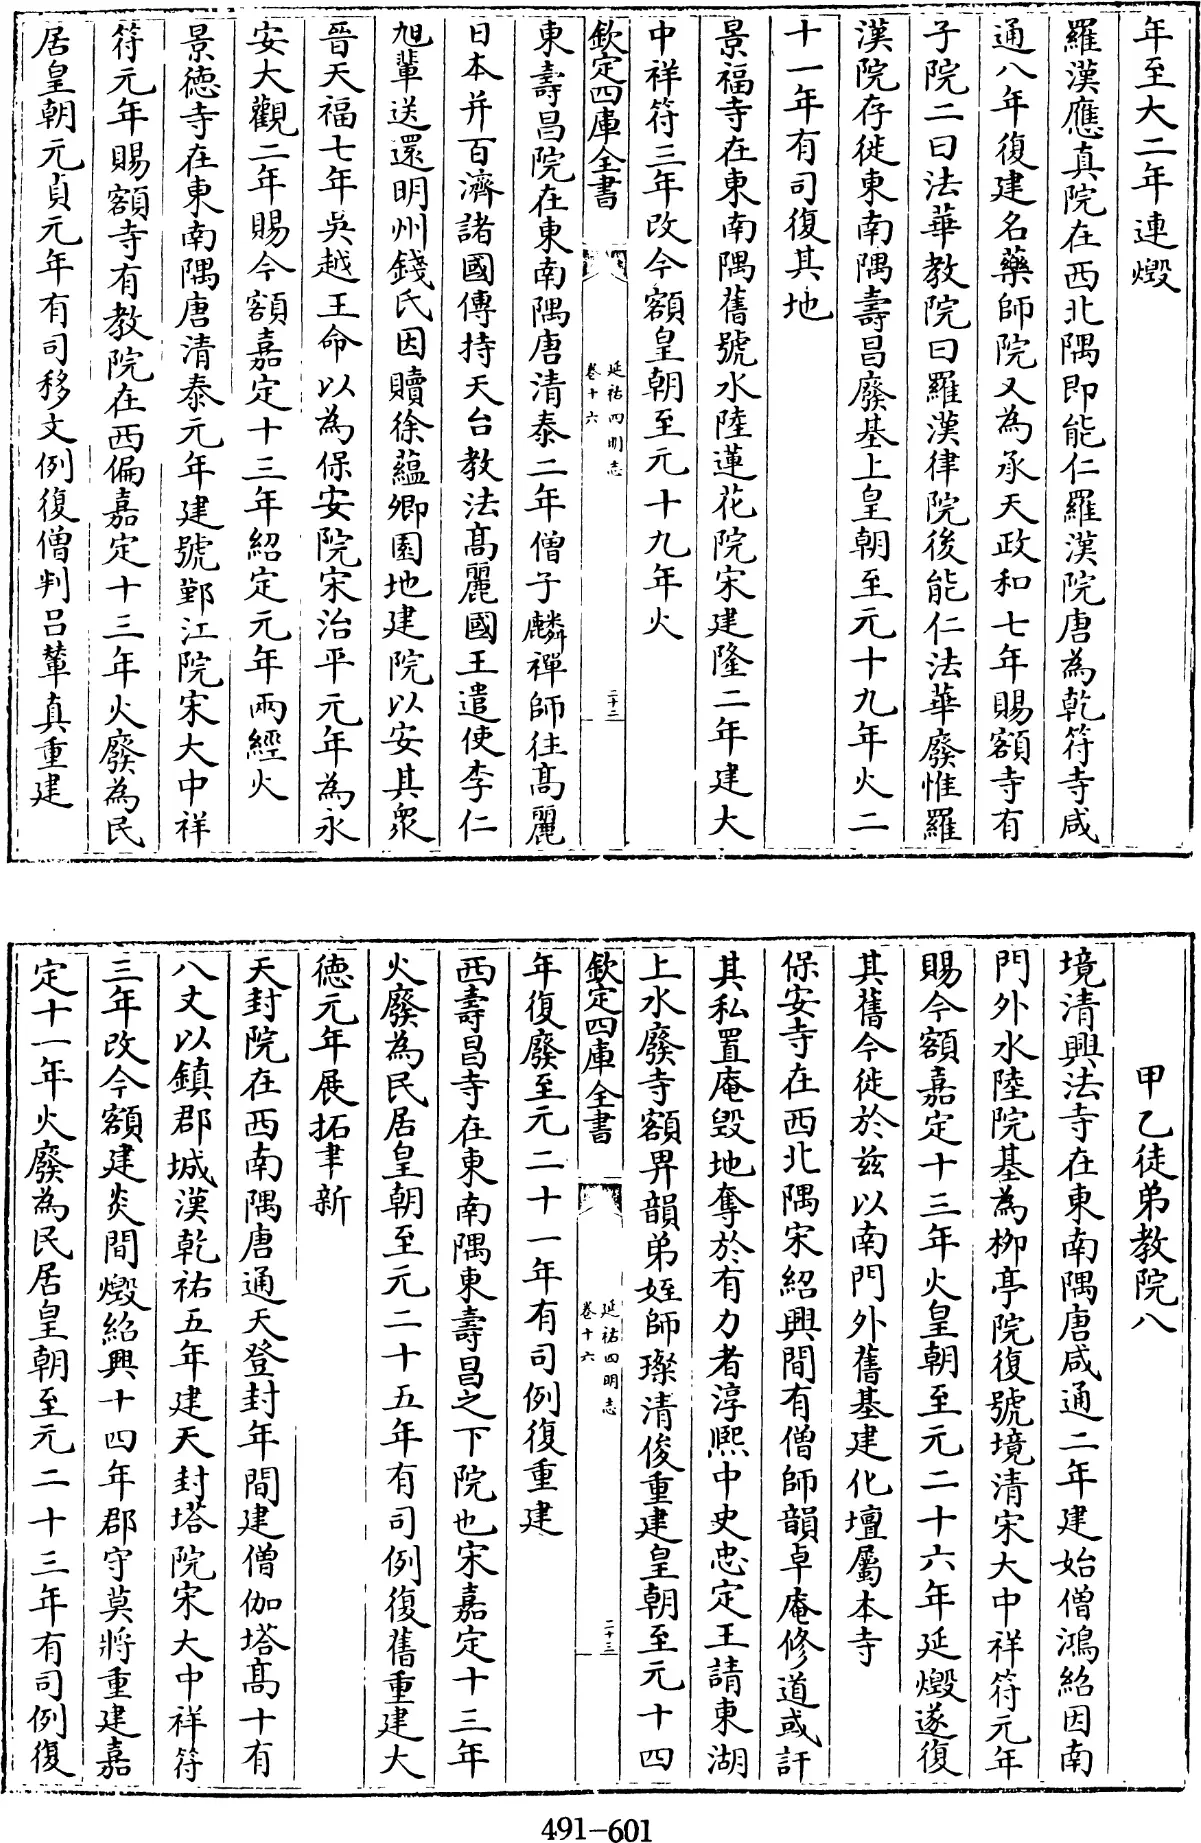 年至大二年連燬
羅漢應真院在西北隅即能仁羅漢院唐為乾符寺咸
通八年復建名藥師院又為承天政和七年賜額寺有
子院二曰法華教院曰羅漢律院後能仁法華廢惟羅
漢院存徙東南隅壽昌廢基上皇朝至元十九年火二
十一年有司復其地
景福寺在東南隅舊號水陸蓮花院宋建隆二年建大
中祥符三年改今額皇朝至元十九年火
欽定四庫全書
延祐四明志
卷十六
二十二
東壽昌院在東南隅唐清泰二年僧子麟禪師往高麗
日本并百濟諸國傳持天台教法高麗國王遣使李仁
旭輩送還明州錢氏因贖徐蘊卿園地建院以安其衆
晉天福七年吳越王命以為保安院宋治平元年為永
安大觀二年賜今額嘉定十三年紹定元年兩經火
景徳寺在東南隅唐清泰元年建號鄞江院宋大中祥
符元年賜額寺有教院在西偏嘉定十三年火廢為民
居皇朝元貞元年有司移文例復僧判呂輦真重建
甲乙徒弟教院八
境清興法寺在東南隅唐咸通二年建始僧鴻紹因南
門外水陸院基為柳亭院復號境清宋大中祥符元年
賜今額嘉定十三年火皇朝至元二十六年延燬遂復
其舊今徙於兹以南門外舊基建化壇屬本寺
保安寺在西北隅宋紹興間有僧師韻卓庵修道或訐
其私置庵毁地奪於有力者淳熙中史忠定王請東湖
上水廢寺額畀韻弟姪師璨清俊重建皇朝至元十四
欽定四庫全書
延祐四明志
卷十六
二十三
年復廢至元二十一年有司例復重建
西壽昌寺在東南隅東壽昌之下院也宋嘉定十三年
火廢為民居皇朝至元二十五年有司例復舊重建大
徳元年展拓聿新
天封院在西南隅唐通天登封年間建僧伽塔高十有
八丈以鎮郡城漢乾祐五年建天封塔院宋大中祥符
三年改今額建炎間燬紹興十四年郡守莫將重建嘉
定十一年火廢為民居皇朝至元二十三年有司例復
491-601